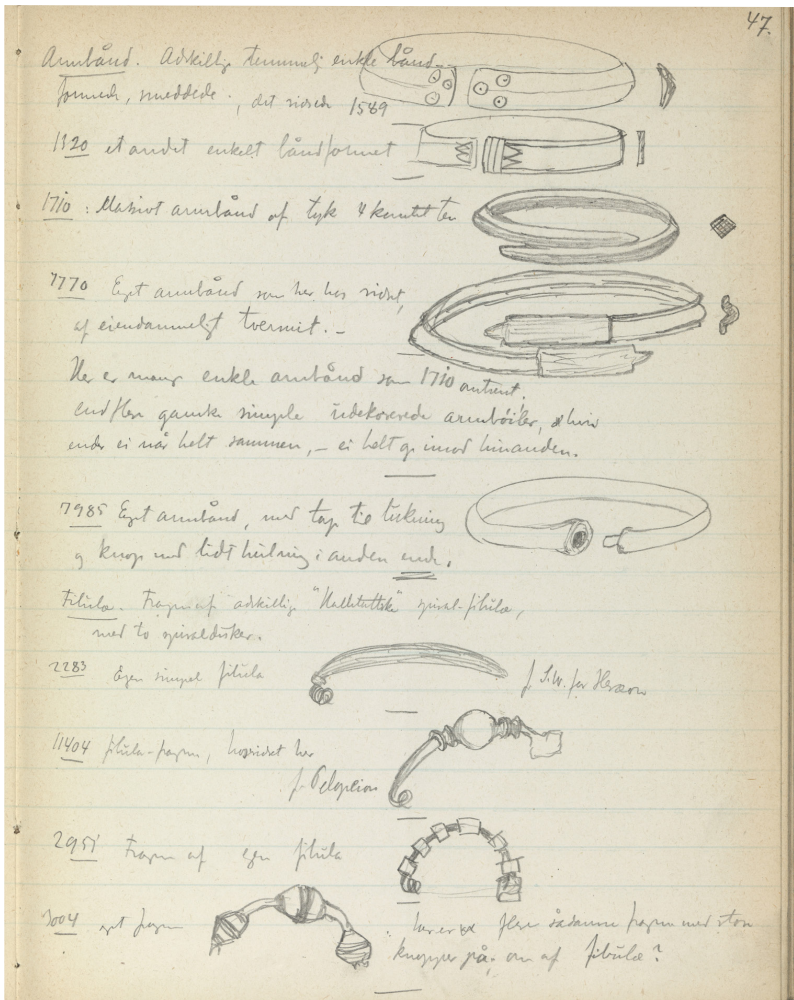 47.
Armbånd. Adskillig temmelig enkle bånd-
formede, smeddede. , det sidste 1589
1320 et andet enkelt båndformet
1710 : Massivt armbånd af tyk 4 kantet ten
7770 Eget armbånd som her hos ridset,
af eiendommeligt tversnit. –
Her er mange enkle armbånd som 1710 omtrent.
endflere ganske simple udekorerede armbøiler,
ender ei når helt sammen, – ei helt imod hinanden.
7985 Eget armbånd, med tap til lukning
og knop med lidt hulning i anden ende.
Fibula. Fragm af adskillige "Hallstattske" spiral-fibulæ,
med to spiraldisker.
2283 Egen simpel fibula
f. S.W. for Heraion
11404 fibula-fragm, hosridset her
f. Pelopeion
2951 Fragm af egen fibula
3004 eget fragm
her er flere sådanne fragm med store
knopper på, om af fibulæ?